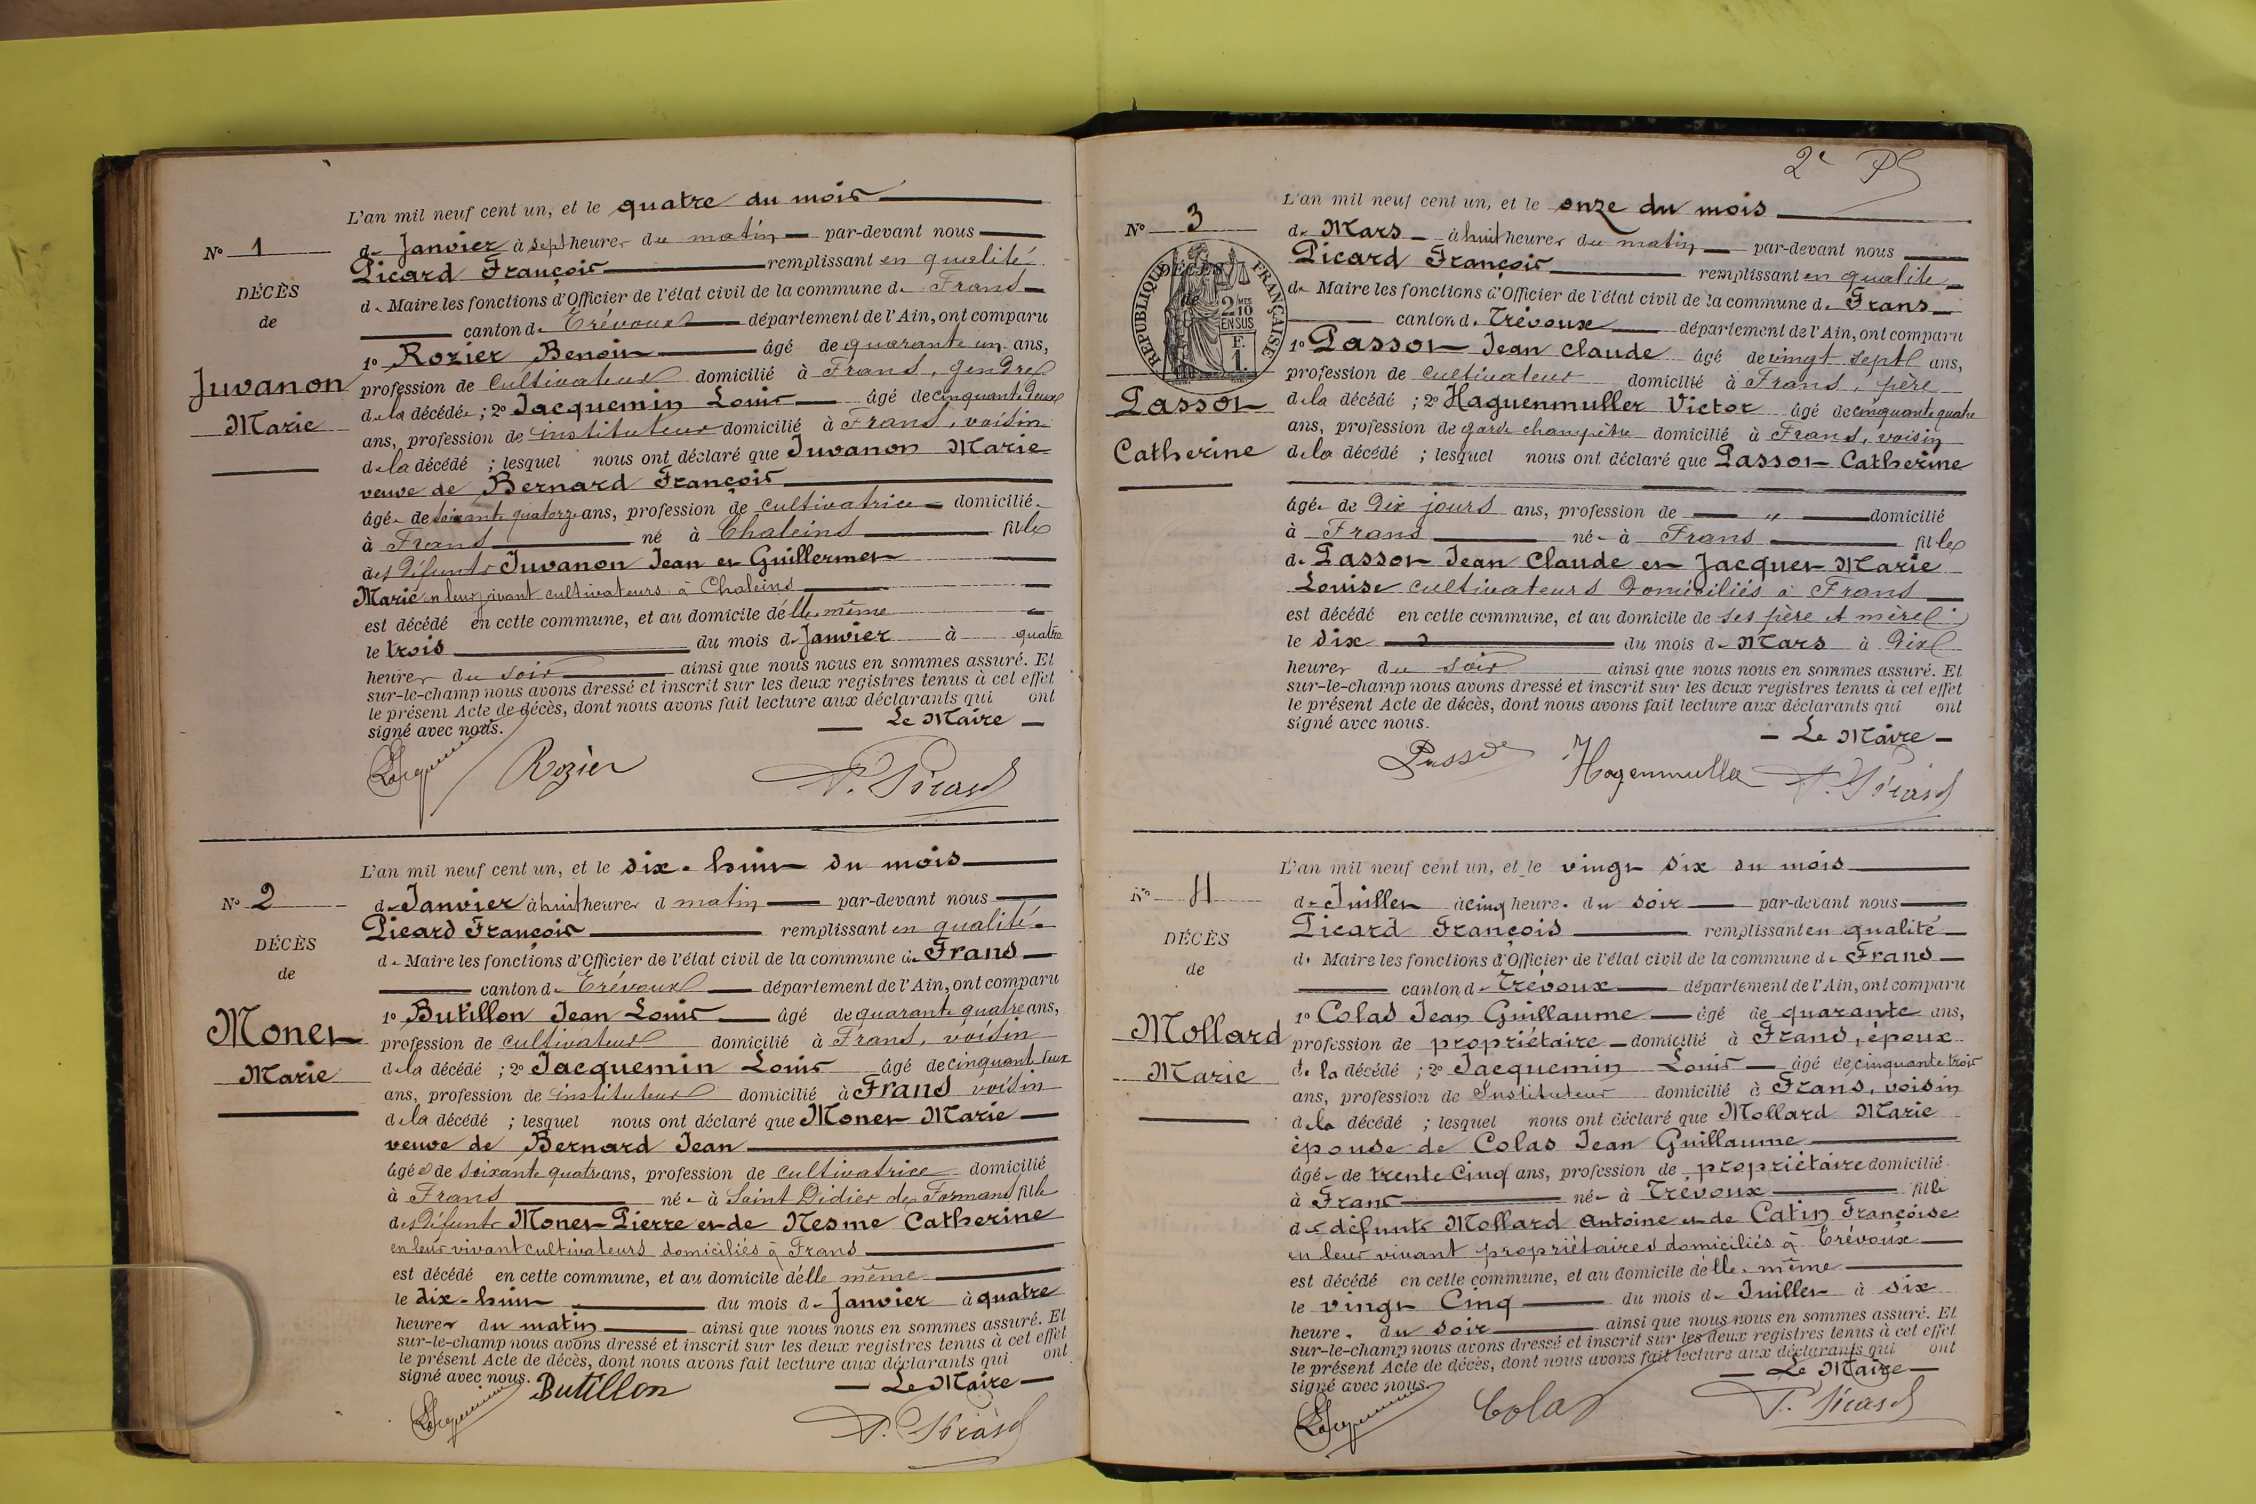 L'an mil neuf cent un, et le quatre du mois
No 1
de Janvier à sept heures du matin par-devant nous
Picard François remplissant en qualité
DÉCÈS
de
de Maire les fonctions d'Officier de l'état civil de la commune de Frans
canton de Trévoux département de l'Ain, ont comparu
1o Rozier Benoit âgé de quarante un ans,
Juvanon
Marie
profession de cultivateur domicilié à Frans, gendre
de la décédée ; 2o Jacquemin Louis âgé de cinquante deux
ans, profession de instituteur domicilié à Frans, voisin
de la décédé ; lesquel nous ont déclaré que Juvanon Marie
veuve de Bernard François
âgée de soixante quatorze ans, profession de cultivatrice domicilié
à Frans né à Chaleins fille
des défunts Juvanon Jean et Guillermet
Marie en leur vivant cultivateurs à Chaleins
est décédé en cette commune, et au domicile d'elle même
le trois du mois de Janvier à quatre
heures du soir ainsi que nous nous en sommes assuré. Et
sur-le-champ nous avons dressé et inscrit sur les deux registres tenus à cet effet
le présent Acte de décès, dont nous avons fait lecture aux déclarants qui ont
signé avec nous. Le Maire
Jacquemin Rozier P. Picard
L'an mil neuf cent un, et le dix-huit du mois
No 2
de Janvier à huit heures d matin par-devant nous
Picard François remplissant en qualité
DÉCÈS
de
de Maire les fonctions d'Officier de l'état civil de la commune de Frans
canton de Trévoux département de l'Ain, ont comparu
1o Butillon Jean Louis âgé de quarante quatre ans,
Monet
Marie
profession de cultivateur domicilié à Frans, voisin
de la décédé ; 2o Jacquemin Louis âgé de cinquante deux
ans, profession de instituteur domicilié à Frans voisin
de la décédé ; lesquel nous ont déclaré que Monet Marie
veuve de Bernard Jean
âgée de soixante quatre ans, profession de cultivatrice domicilié
à Frans née à Saint Didier de Formans fille
des défunts Monet Pierre et de Nesme Catherine
en leur vivant cultivateurs domiciliés à Frans
est décédé en cette commune, et au domicile d'elle même
le dix-huit du mois de Janvier à quatre
heures du matin ainsi que nous nous en sommes assuré. Et
sur-le-champ nous avons dressé et inscrit sur les deux registres tenus à cet effet
le présent Acte de décès, dont nous avons fait lecture aux déclarants qui ont
signé avec nous. Le Maire
Jacquemin Butillon P. Picard
2e
L'an mil neuf cent un, et le onze du mois
No 3
de Mars à huit heures du matin par-devant nous
Picard François remplissant en qualité
DÉCÈS
de
RÉPUBLIQUE FRANÇAISE
2 MES
10
EN SUS
F.
1.
de Maire les fonctions d'Officier de l'état civil de la commune de Frans
canton de Trévoux département de l'Ain, ont comparu
1o Passot Jean Claude âgé de vingt sept ans,
profession de cultivateur domicilié à Frans, père
Passot
Catherine
de la décédé ; 2o Haguenmuller Victor âgé de cinquante quatre
ans, profession de garde champêtre domicilié à Frans, voisin
de la décédé ; lesquel nous ont déclaré que Passot Catherine
âgée de dix jours ans, profession de " domicilié
à Frans née à Frans fille
de Passot Jean Claude et Jacquet Marie
Louise cultivateurs domiciliés à Frans
est décédé en cette commune, et au domicile de ses père et mère
le dix du mois de Mars à dix
heures du soir ainsi que nous nous en sommes assuré. Et
sur-le-champ nous avons dressé et inscrit sur les deux registres tenus à cet effet
le présent Acte de décès, dont nous avons fait lecture aux déclarants qui ont
signé avec nous.
Le Maire
Passot Hagenmuller P. Picard
L'an mil neuf cent un, et le vingt six du mois
No 4
de Juillet à cinq heure. du soir par-devant nous
Picard François remplissant en qualité
DÉCÈS
de
de Maire les fonctions d'Officier de l'état civil de la commune de Frans
canton de Trévoux département de l'Ain, ont comparu
1o Colas Jean Guillaume âgé de quarante ans,
Mollard
Marie
profession de propriétaire domicilié à Frans, époux
de la décédé ; 2o Jacquemin Louis âgé de cinquante trois
ans, profession de Instituteur domicilié à Frans, voisin
de la décédé ; lesquel nous ont déclaré que Mollard Marie
épouse de Colas Jean Guillaume
âgée de trente cinq ans, profession de propriétaire domicilié
à Frans née à Trévoux fille
de défunts Mollard Antoine et de Catin Françoise
en leur vivant propriétaires domiciliés à Trévoux
est décédé en cette commune, et au domicile d'elle-même
le vingt cinq du mois de Juillet à six
heure. du soir ainsi que nous nous en sommes assuré. Et
sur-le-champ nous avons dressé et inscrit sur les deux registres tenus à cet effet
le présent Acte de décès, dont nous avons fait lecture aux déclarants qui ont
signé avec nous. Le Maire
Jacquemin Colas P. Picard